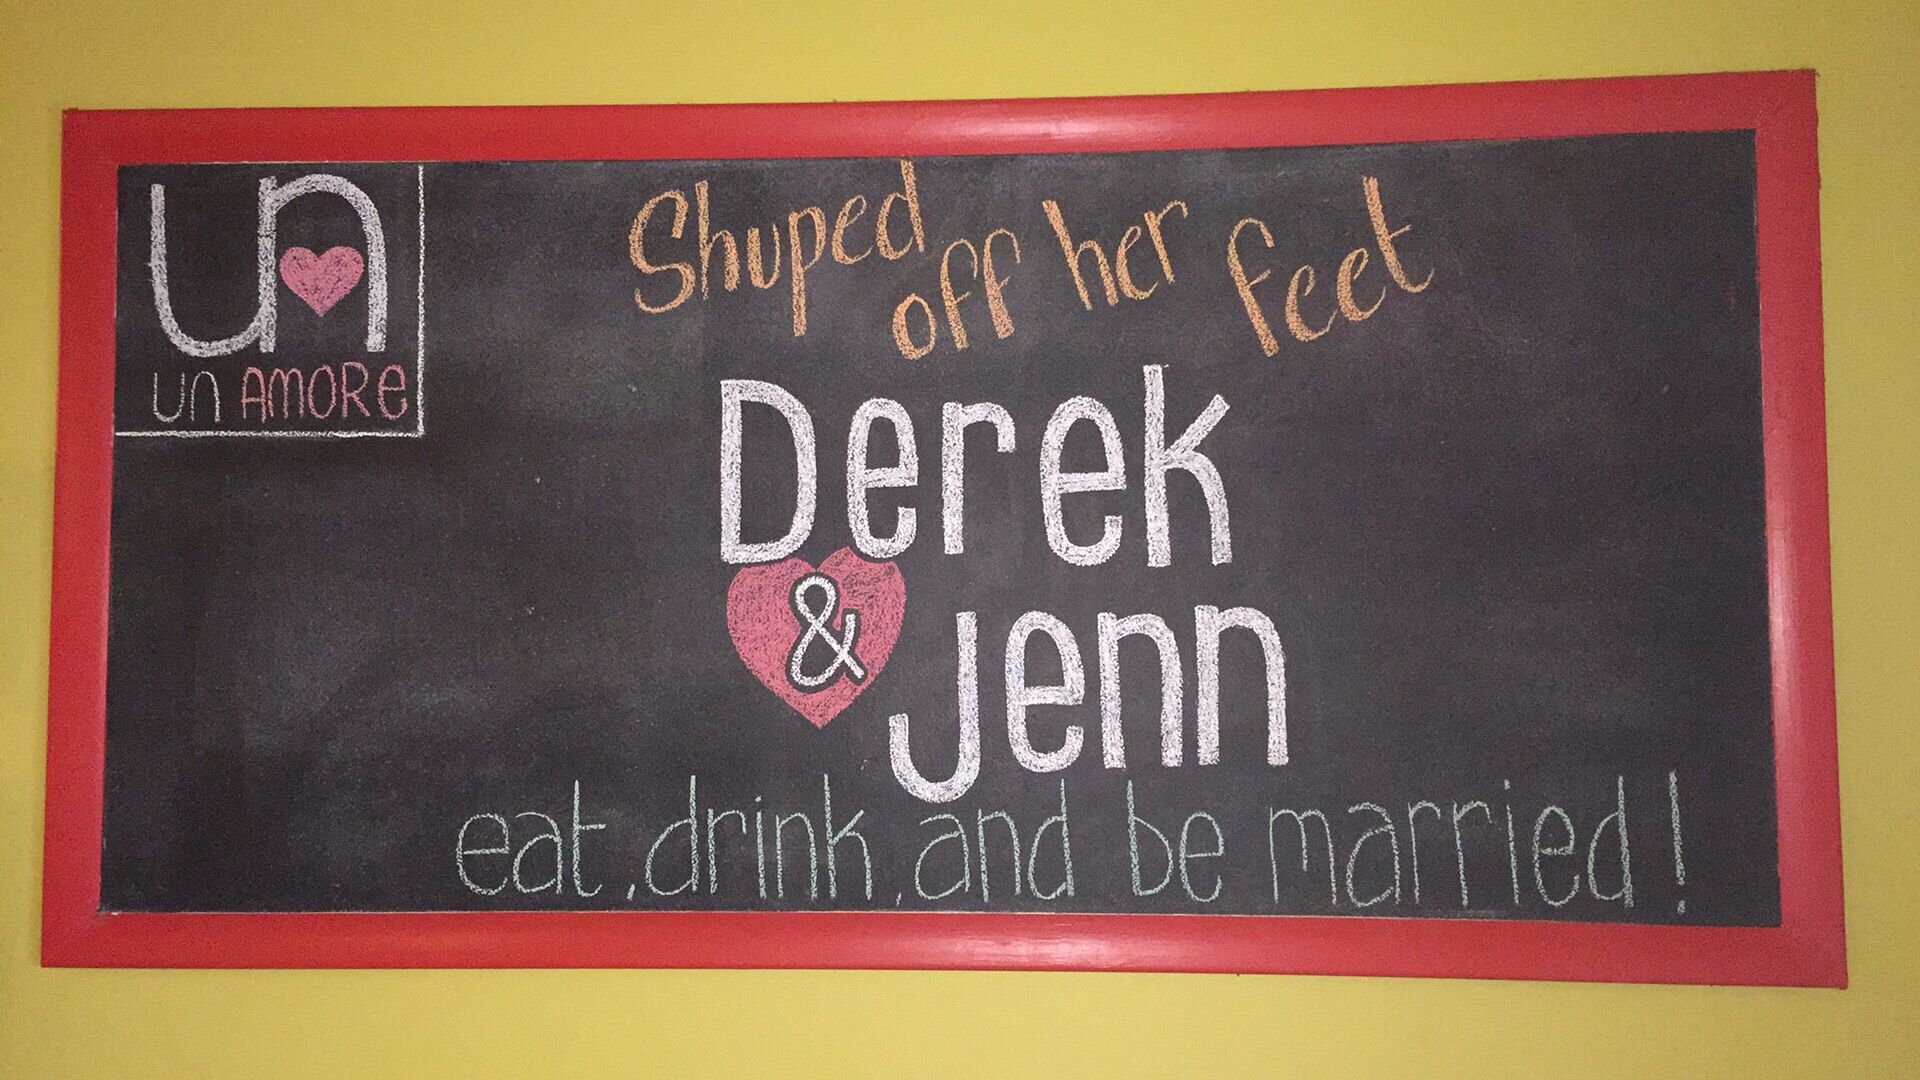 un
un AMORe
Shuped off her feet
Derek
& Jenn
eat, drink, and be married!